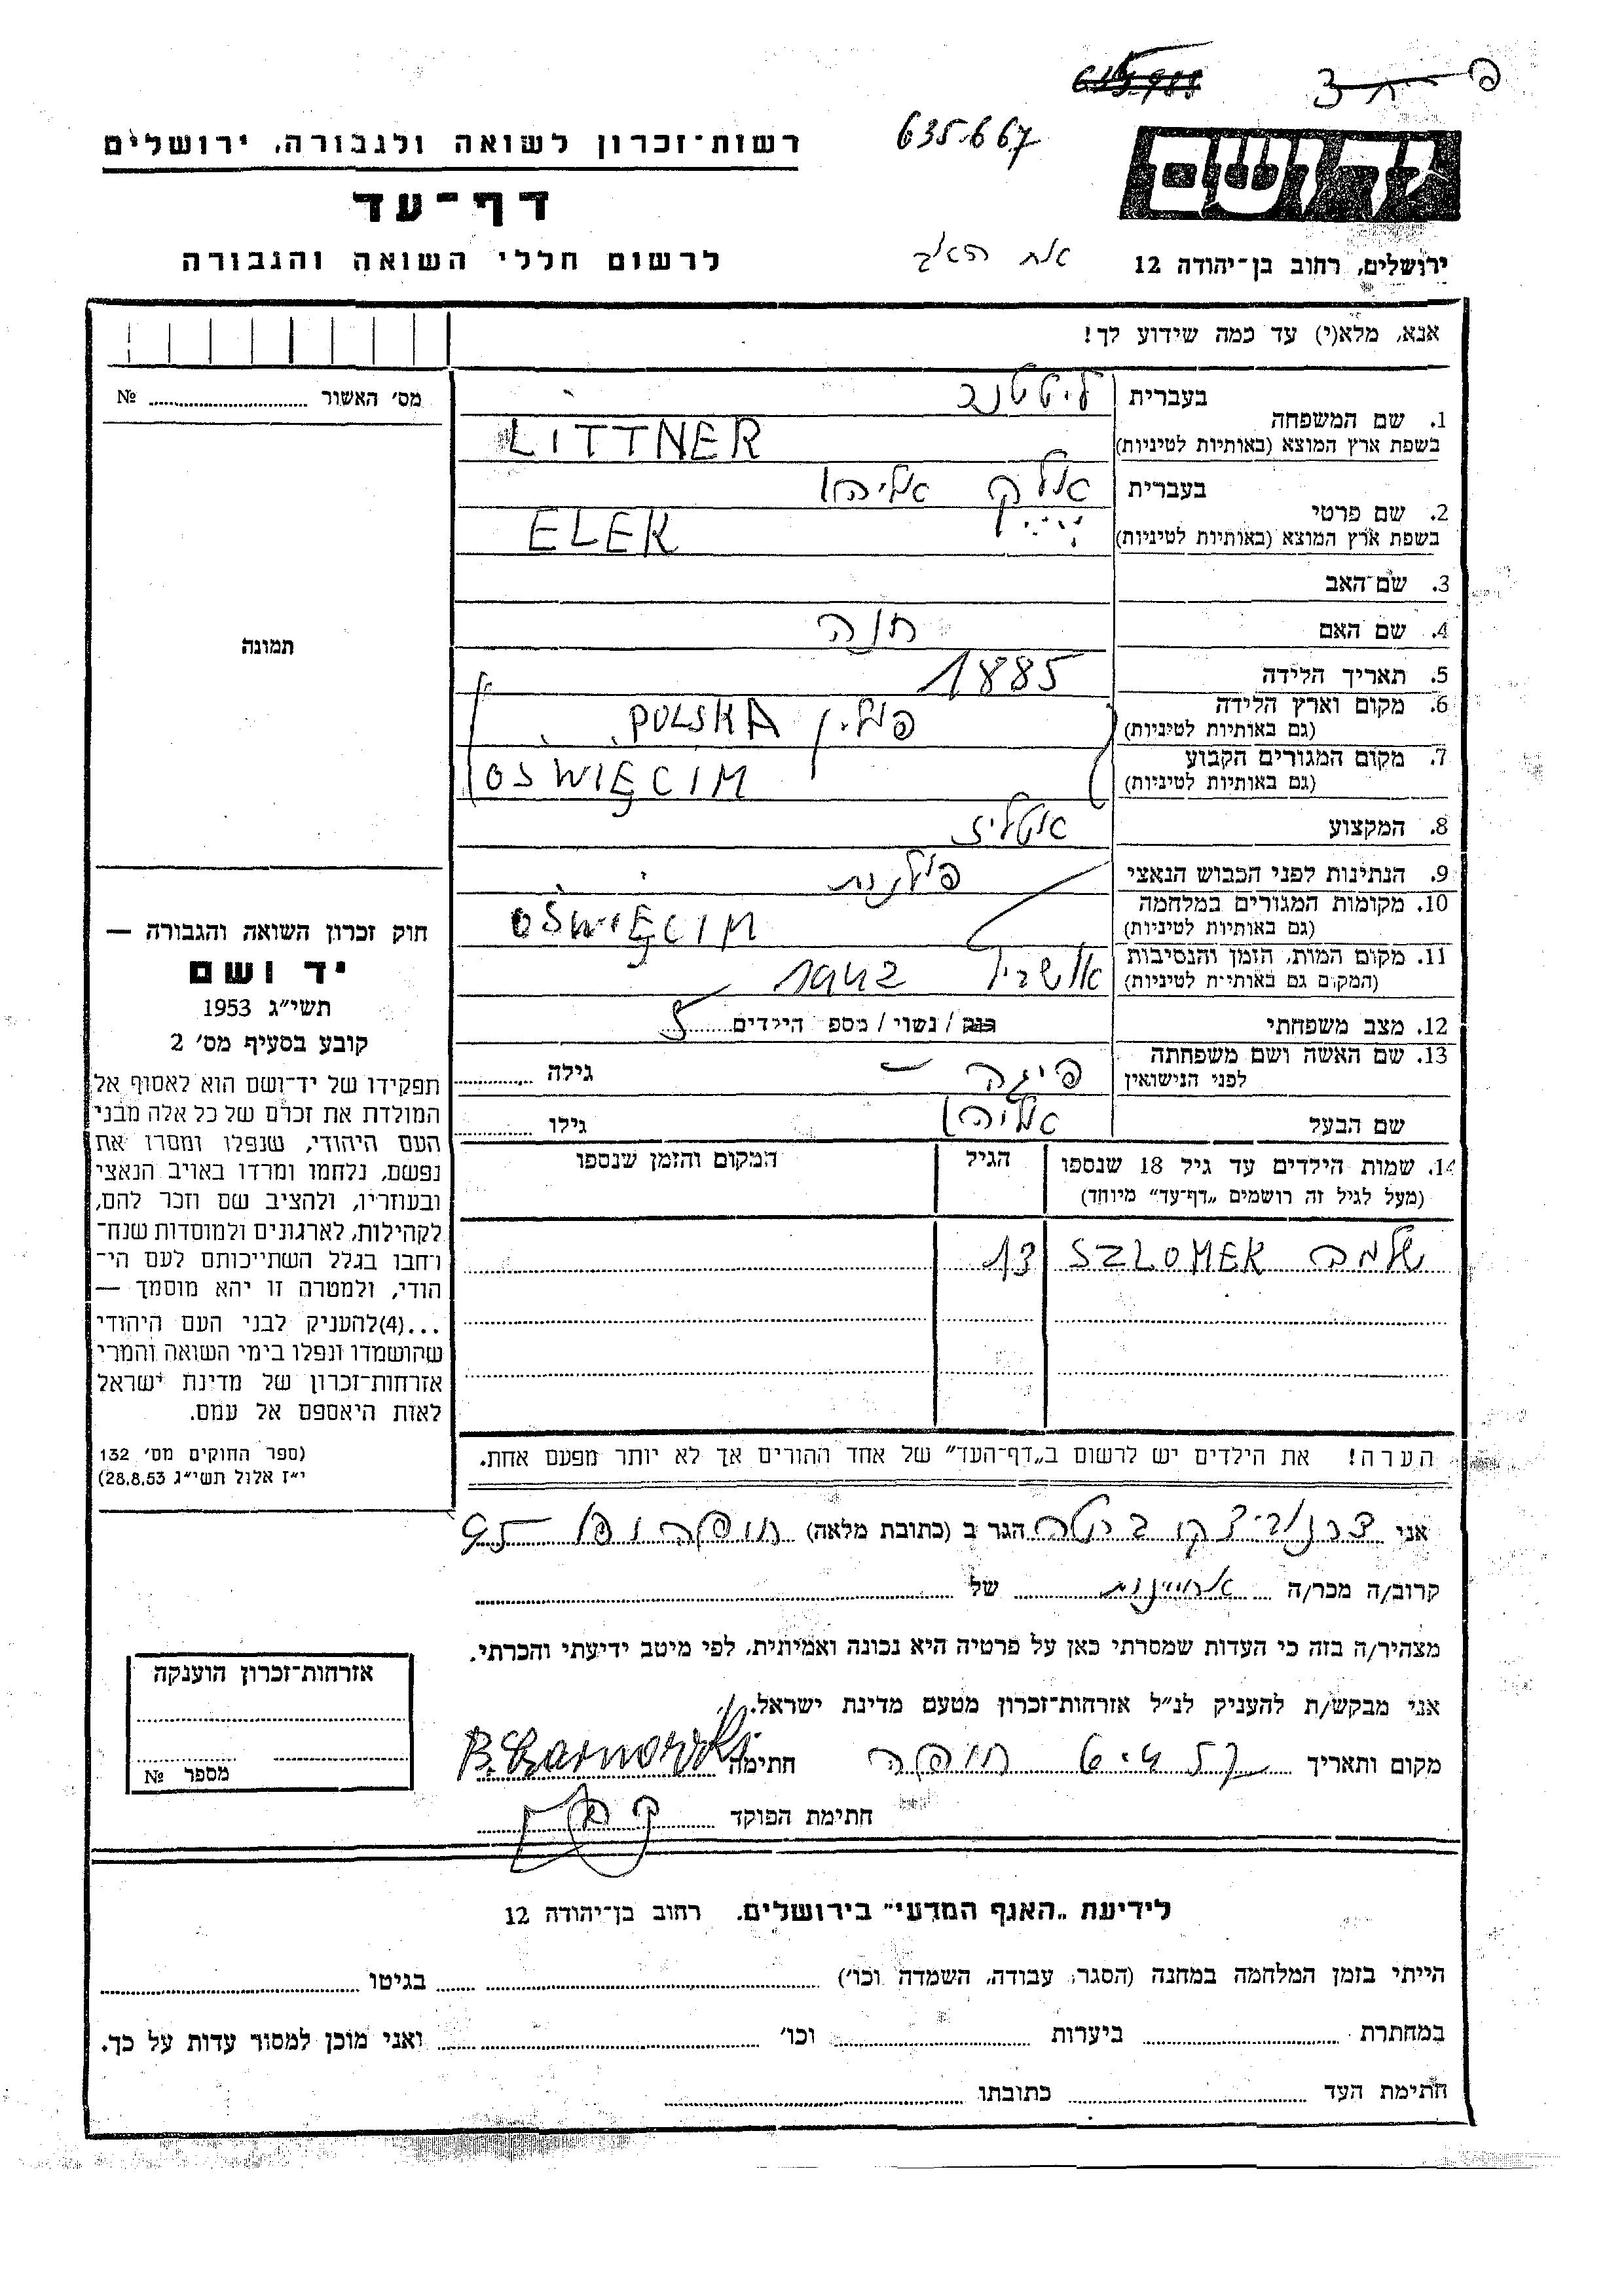 635.667
רשות־זכרון לשואה ולגבורה, ירושלים
יד ושם
דף־עד
לרשום חללי השואה והגבורה
ירושלים, רחוב בן־יהודה 12
אנא, מלא(י) עד כמה שידוע לך!
מס׳ האשור № 
1. שם המשפחה
בעברית ליטנר
בשפת ארץ המוצא (באותיות לטיניות) LITTNER
2. שם פרטי
בעברית אלק אליהו
בשפת ארץ המוצא (באותיות לטיניות) ELEK
3. שם־האב
4. שם האם חנה
תמונה
5. תאריך הלידה 1885
6. מקום וארץ הלידה
(גם באותיות לטיניות) פולין POLSKA
7. מקום המגורים הקבוע
(גם באותיות לטיניות) OSWIĘCIM
8. המקצוע אטליז
9. הנתינות לפני הכבוש הנאצי פולנית
10. מקומות המגורים במלחמה
(גם באותיות לטיניות) OSWIĘCIM
11. מקום המות, הזמן והנסיבות
(המקום גם באותיות לטיניות) 1942
12. מצב משפחתי רווק / נשוי / מספ׳ הילדים 5
13. שם האשה ושם משפחתה
לפני הנישואין פיגה גילה
שם הבעל אליהו גילו
14. שמות הילדים עד גיל 18 שנספו הגיל המקום והזמן שנספו
(מעל לגיל זה רושמים „דף־עד״ מיוחד)
שלמה SZLOMEK 13
הערה! את הילדים יש לרשום ב„דף־העד״ של אחד ההורים אך לא יותר מפעם אחת.
חוק זכרון השואה והגבורה —
יד ושם
תשי״ג 1953
קובע בסעיף מס׳ 2
תפקידו של יד־ושם הוא לאסוף אל
המולדת את זכרם של כל אלה מבני
העם היהודי, שנפלו ומסרו את
נפשם, נלחמו ומרדו באויב הנאצי
ובעוזריו, ולהציב שם וזכר להם,
לקהילות, לארגונים ולמוסדות שנח־
רבו בגלל השתייכותם לעם הי־
הודי, ולמטרה זו יהא מוסמך —
...(4) להעניק לבני העם היהודי
שהושמדו ונפלו בימי השואה והמרי
אזרחות־זכרון של מדינת ישראל
לאות היאספם אל עמם.
(ספר החוקים מס׳ 132
י״ז אלול תשי״ג 28.8.53)
אני הגר ב (כתובת מלאה) 95
קרוב/ה מכר/ה אחיינית של
מצהיר/ה בזה כי העדות שמסרתי כאן על פרטיה היא נכונה ואמיתית, לפי מיטב ידיעתי והכרתי.
אני מבקש/ת להעניק לנ״ל אזרחות־זכרון מטעם מדינת ישראל.
מקום ותאריך חיפה חתימה B. Czarnowski
חתימת הפוקד
אזרחות־זכרון הוענקה
מספר №
לידיעת „האגף המדעי״ בירושלים. רחוב בן־יהודה 12
הייתי בזמן המלחמה במחנה (הסגר, עבודה, השמדה וכו׳) בגיטו
במחתרת ביערות וכו׳ ואני מוכן למסור עדות על כך.
חתימת העד כתובתו